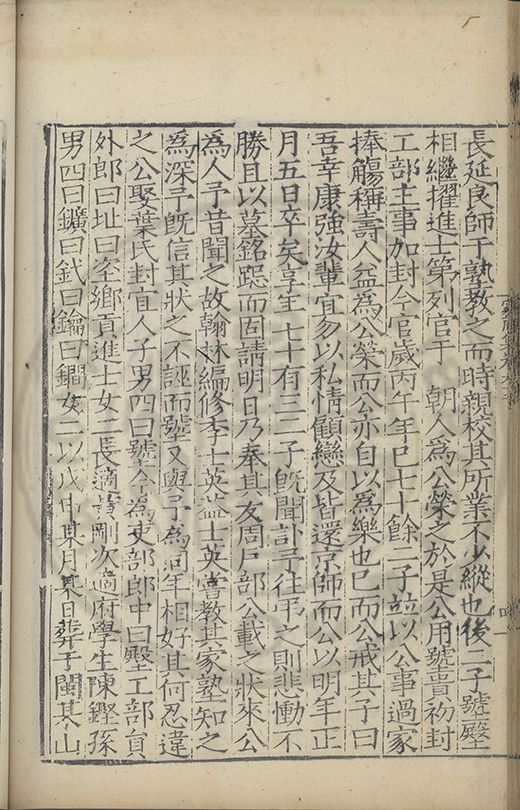 長延良師于塾教之而時親校其所業不少縱也後二子號毉
相繼擢進士第列官于　朝人為公榮之於是公用號貴初封
工部主事加封今官歲丙午年已七十餘二子竝以公事過家
捧觴稱壽人益為公榮而公亦自以為樂也已而公戒其子曰
吾幸康強汝輩宜勿以私情顧戀及皆還京師而公以明年正
月五日卒矣享年七十有三二子旣聞訃予往弔之則悲慟不
勝且以墓銘跽而固請明日乃奉其友周戶部公載之狀來公
為人予昔聞之故翰林編修李士英葢士英嘗教其家塾知之
為深予旣信其狀之不誣而號又與予為同年相好其何忍違
之公娶葉氏封宜人子男四曰號今為吏部郎中曰毉工部員
外郎曰址曰坖鄉貢進士女二長適 剛次適府學生陳鏗孫
男四曰鑛曰釴曰鑰曰鐧女二以戊申某月某日葬于閩某山